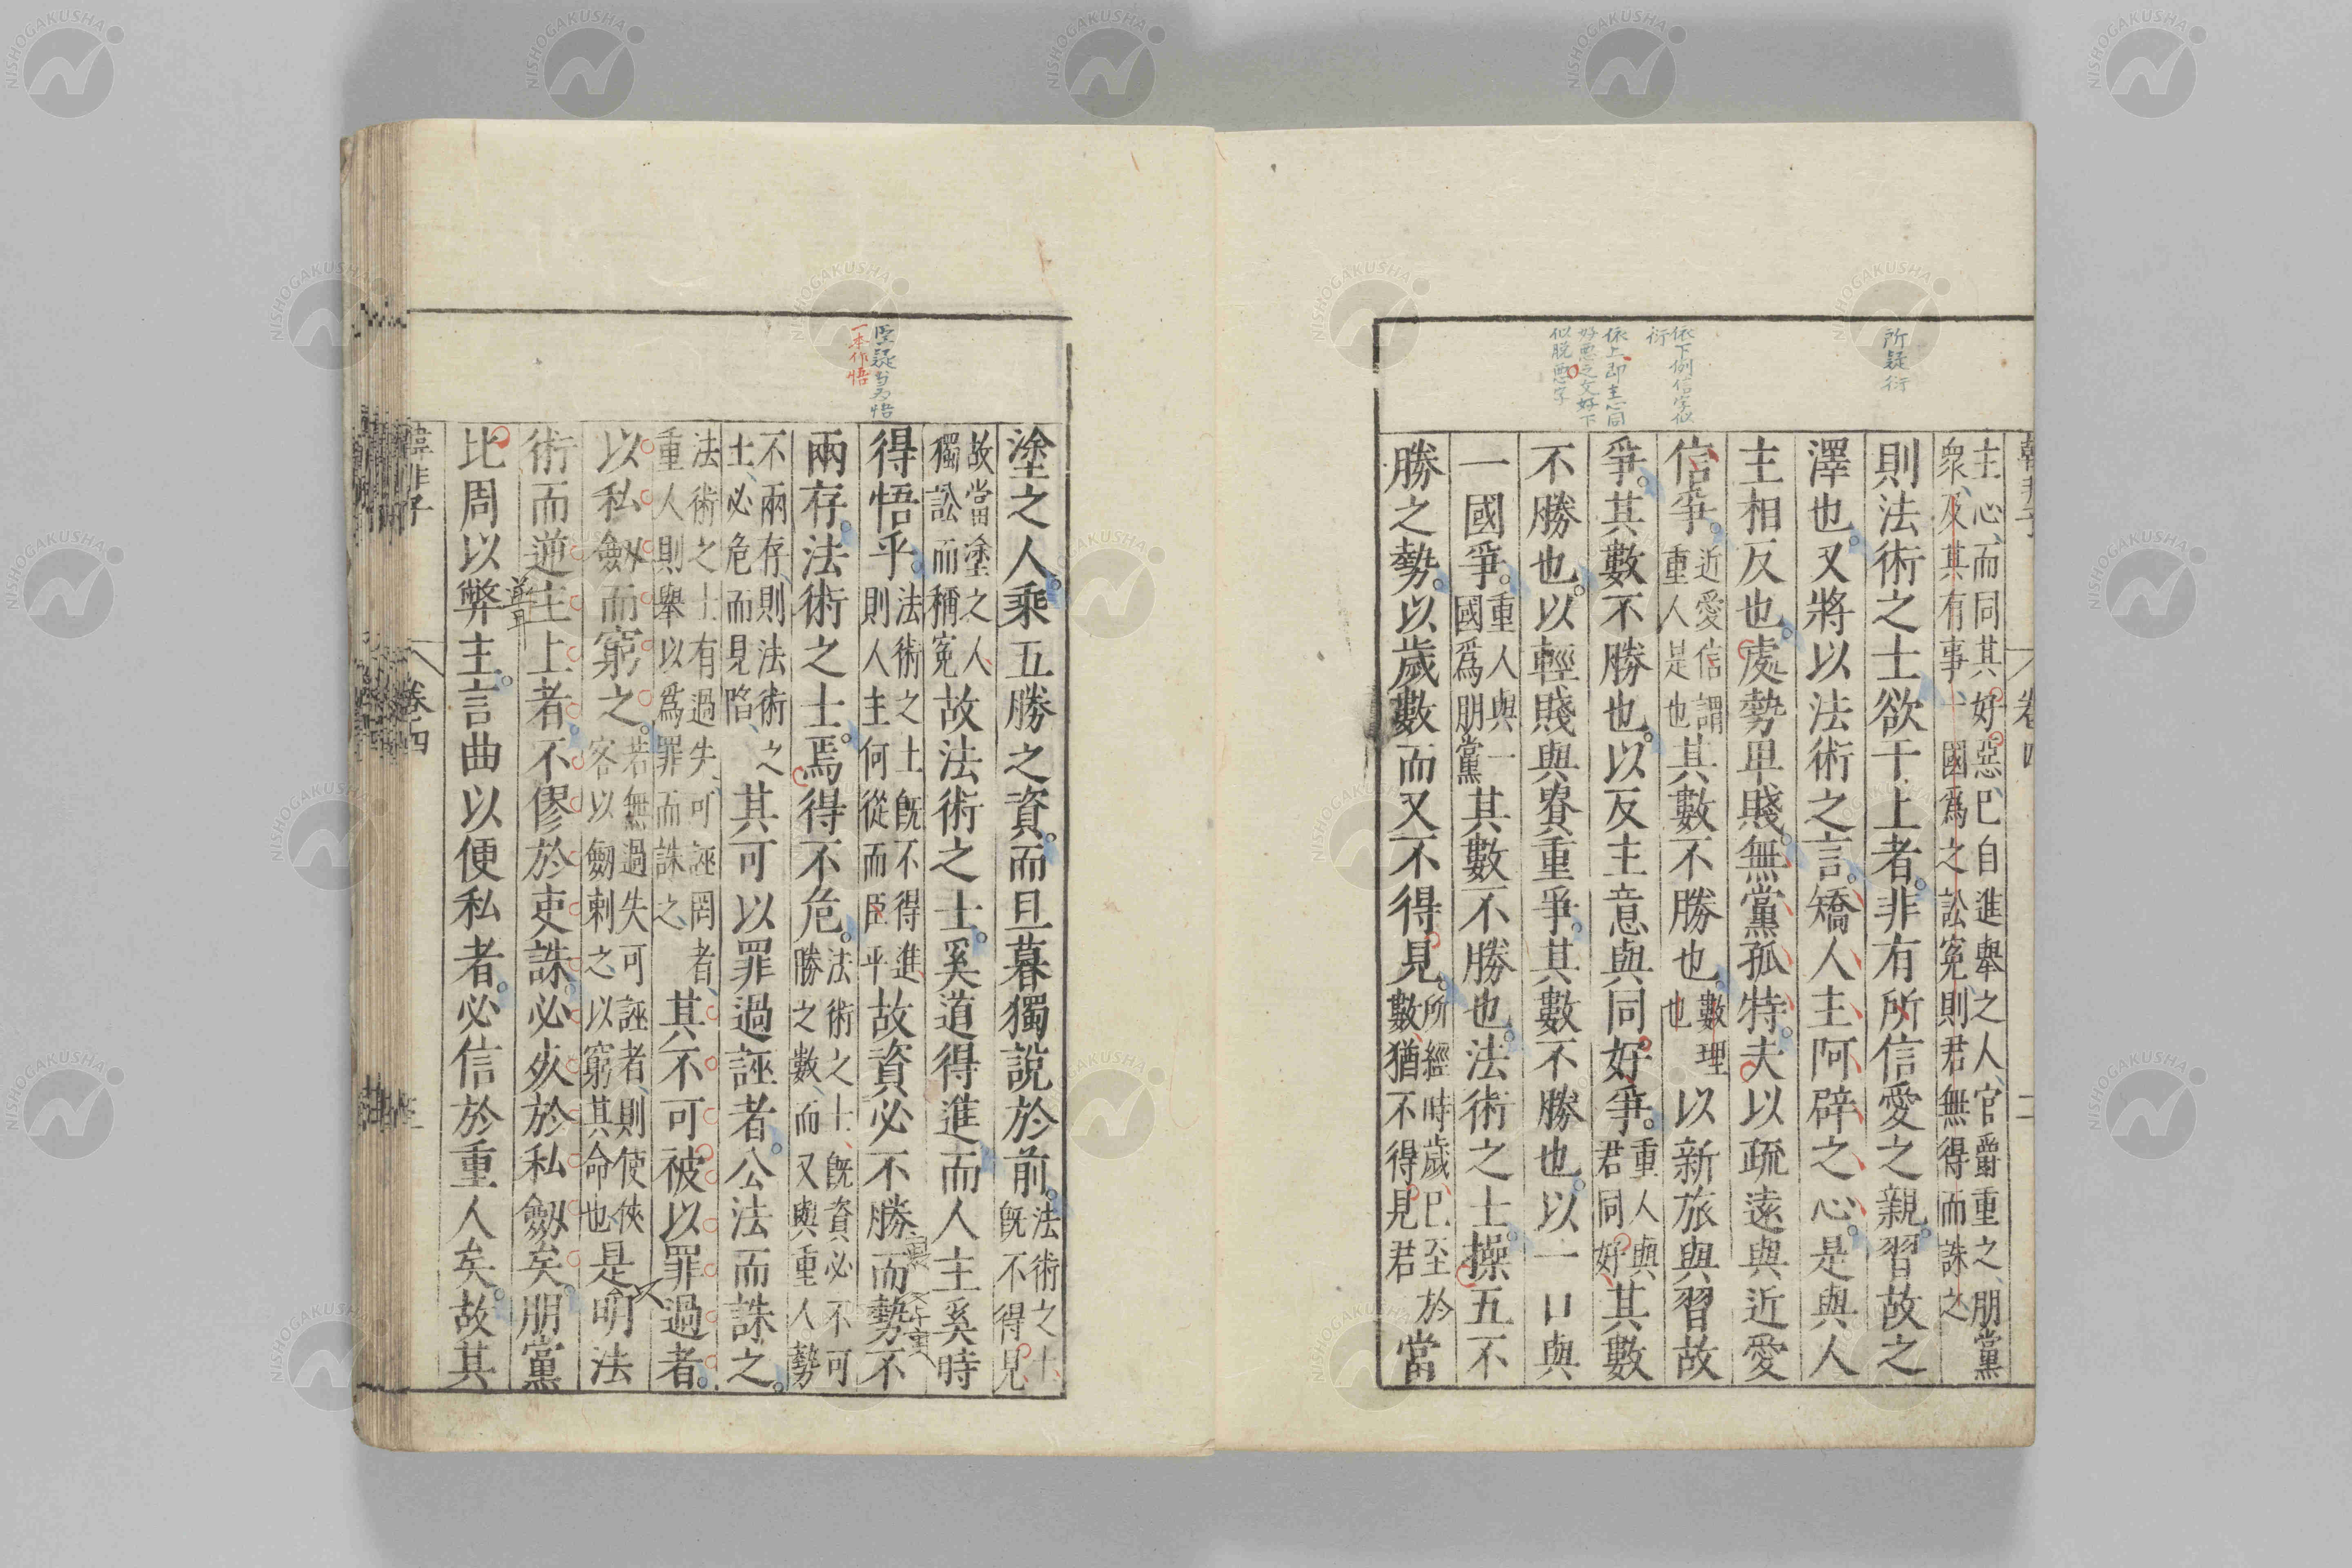 韓非子 卷四 二
所疑衍
依下例信字似
衍
依上即主心同
好惡之文好下
似脫惡字
主心、而同其好惡、已自進舉之人、官爵重之、朋黨
衆、及其有事、一國爲之訟寃、則君無得而誅之
則法術之士欲干上者。非有所信愛之親。習故之
澤也。又將以法術之言。矯人主阿辟之心。是與人
主相反也。處勢卑賤。無黨孤特。夫以疏遠與近愛
信爭。近愛信謂重人是也其數不勝也。數理也以新旅與習故
爭。其數不勝也。以反主意與同好爭。重人與君同好、其數
不勝也。以輕賤與貴重爭。其數不勝也。以一口與
一國爭。重人與一國爲朋黨其數不勝也。法術之士。操五不
勝之勢。以歲數而又不得見。所經時歲已至於數、猶不得見君當
臣疑當爲悟
一本作悟
塗之人。乘五勝之資。而旦暮獨說於前。法術之士、旣不得見、
故當塗之人、獨訟而稱寃故法術之士。奚道得進。而人主奚時
得悟乎。法術之士旣不得進、則人主何從而臣乎故資必不勝而勢不
兩存。法術之士。焉得不危。法術之士、旣資必不可勝之數、而又與重人勢
不兩存、則法術之士、必危而見陷、其可以罪過誣者。公法而誅之。
法術之士有過失、可誣罔者、重人則舉以爲罪而誅之、其不可被以罪過者。
以私劒而窮之。若無過失可誣者、則使俠客以劒刺之、以窮其命也、是明法
術而逆主上者。不僇於吏誅。必死於私劒矣。朋黨
比周以弊主。言曲以便私者。必信於重人矣。故其
韓非子 卷四